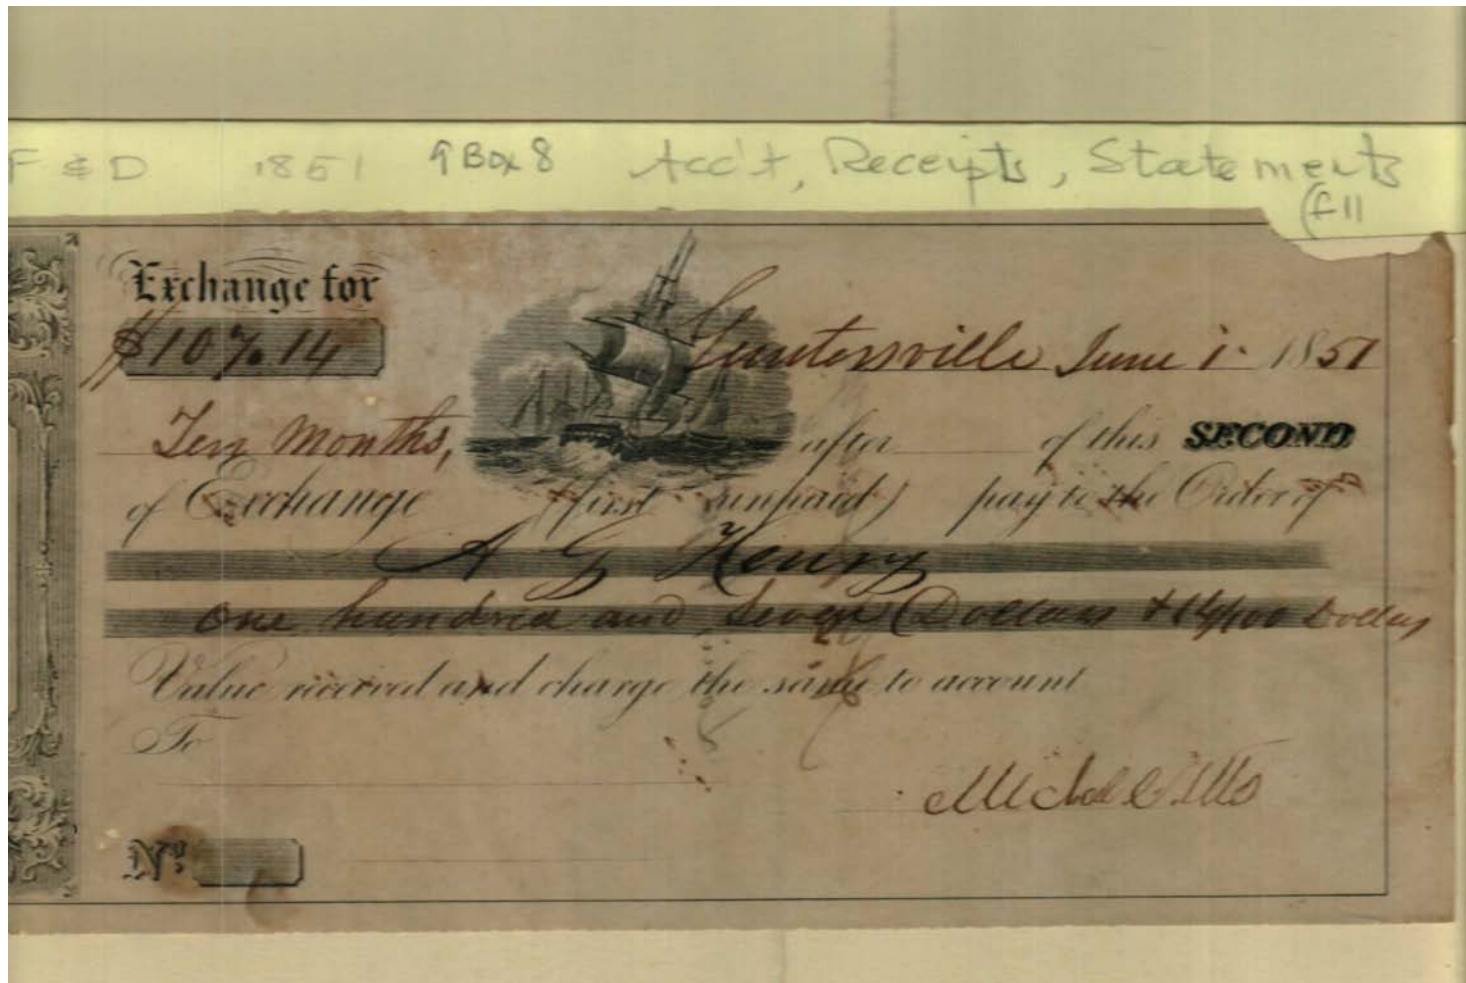 F & D 1851 9 Box 8 Acc't, Receipts, Statements
(f 11
Exchange for
$107.14 Guntersville June 1. 1851
Ten Months, after of this SECOND
of Exchange (first unpaid) pay to the Order of
A G Henry
one hundred and Seven Dollars & 14/100 Dollars
Value received and charge the same to account
To
No.